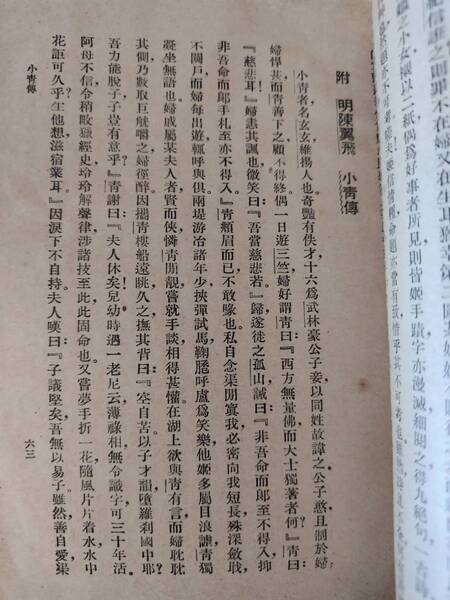 之小女襯以二紙偶爲好事者所見則皆姬手蹟字亦漫滅細閱之得九絕句一古詩
附 明陳翼飛 小青傳
小青者名玄玄維揚人也奇豔有佚才十六爲武林豪公子妾以同姓故諱之公子惑且制於婦
婦悍甚而青善下之顧不得終偶一日遊三竺婦好謂青曰『西方無量佛而大士獨著者何？』青曰
『慈悲耳』婦恚其諷也微笑曰『吾當慈悲若』歸遂徙之孤山誡曰『非吾命而郎至不得入抑
非吾命而郎手札至亦不得入』青頫眉而已不敢喙也私自念渠閒寘我必密向我短長殊深斂戢
不闚戶而婦每出遊輒呼與俱兩堤游冶諸年少挾彈試馬鞠呼盧爲笑樂他姬多屬目浪謔青獨
凝坐無語也婦戚屬某夫人者賢而俠憐青閒靚嘗就手談相得甚懽在湖上欲與青有言而婦耽耽
其側乃數取巨觥嚼之婦徑醉因揚青樓船遠眺久之撫其背曰『空自苦以子才韻墮羅刹國中耶
吾力能脫子子豈有意乎？』青謝曰『夫人休矣兒幼時遇一老尼云薄祿相無令識字可三十年活
阿母不信令稍畋獵經史玲玲解聲律涉諸技至此此固命也又嘗夢手折一花隨風片片着水水中
花詎可久乎生他想滋宿業耳』因淚下不自持夫人嘆曰『子議堅矣吾無以易子雖然善自愛渠
小青傳
六三